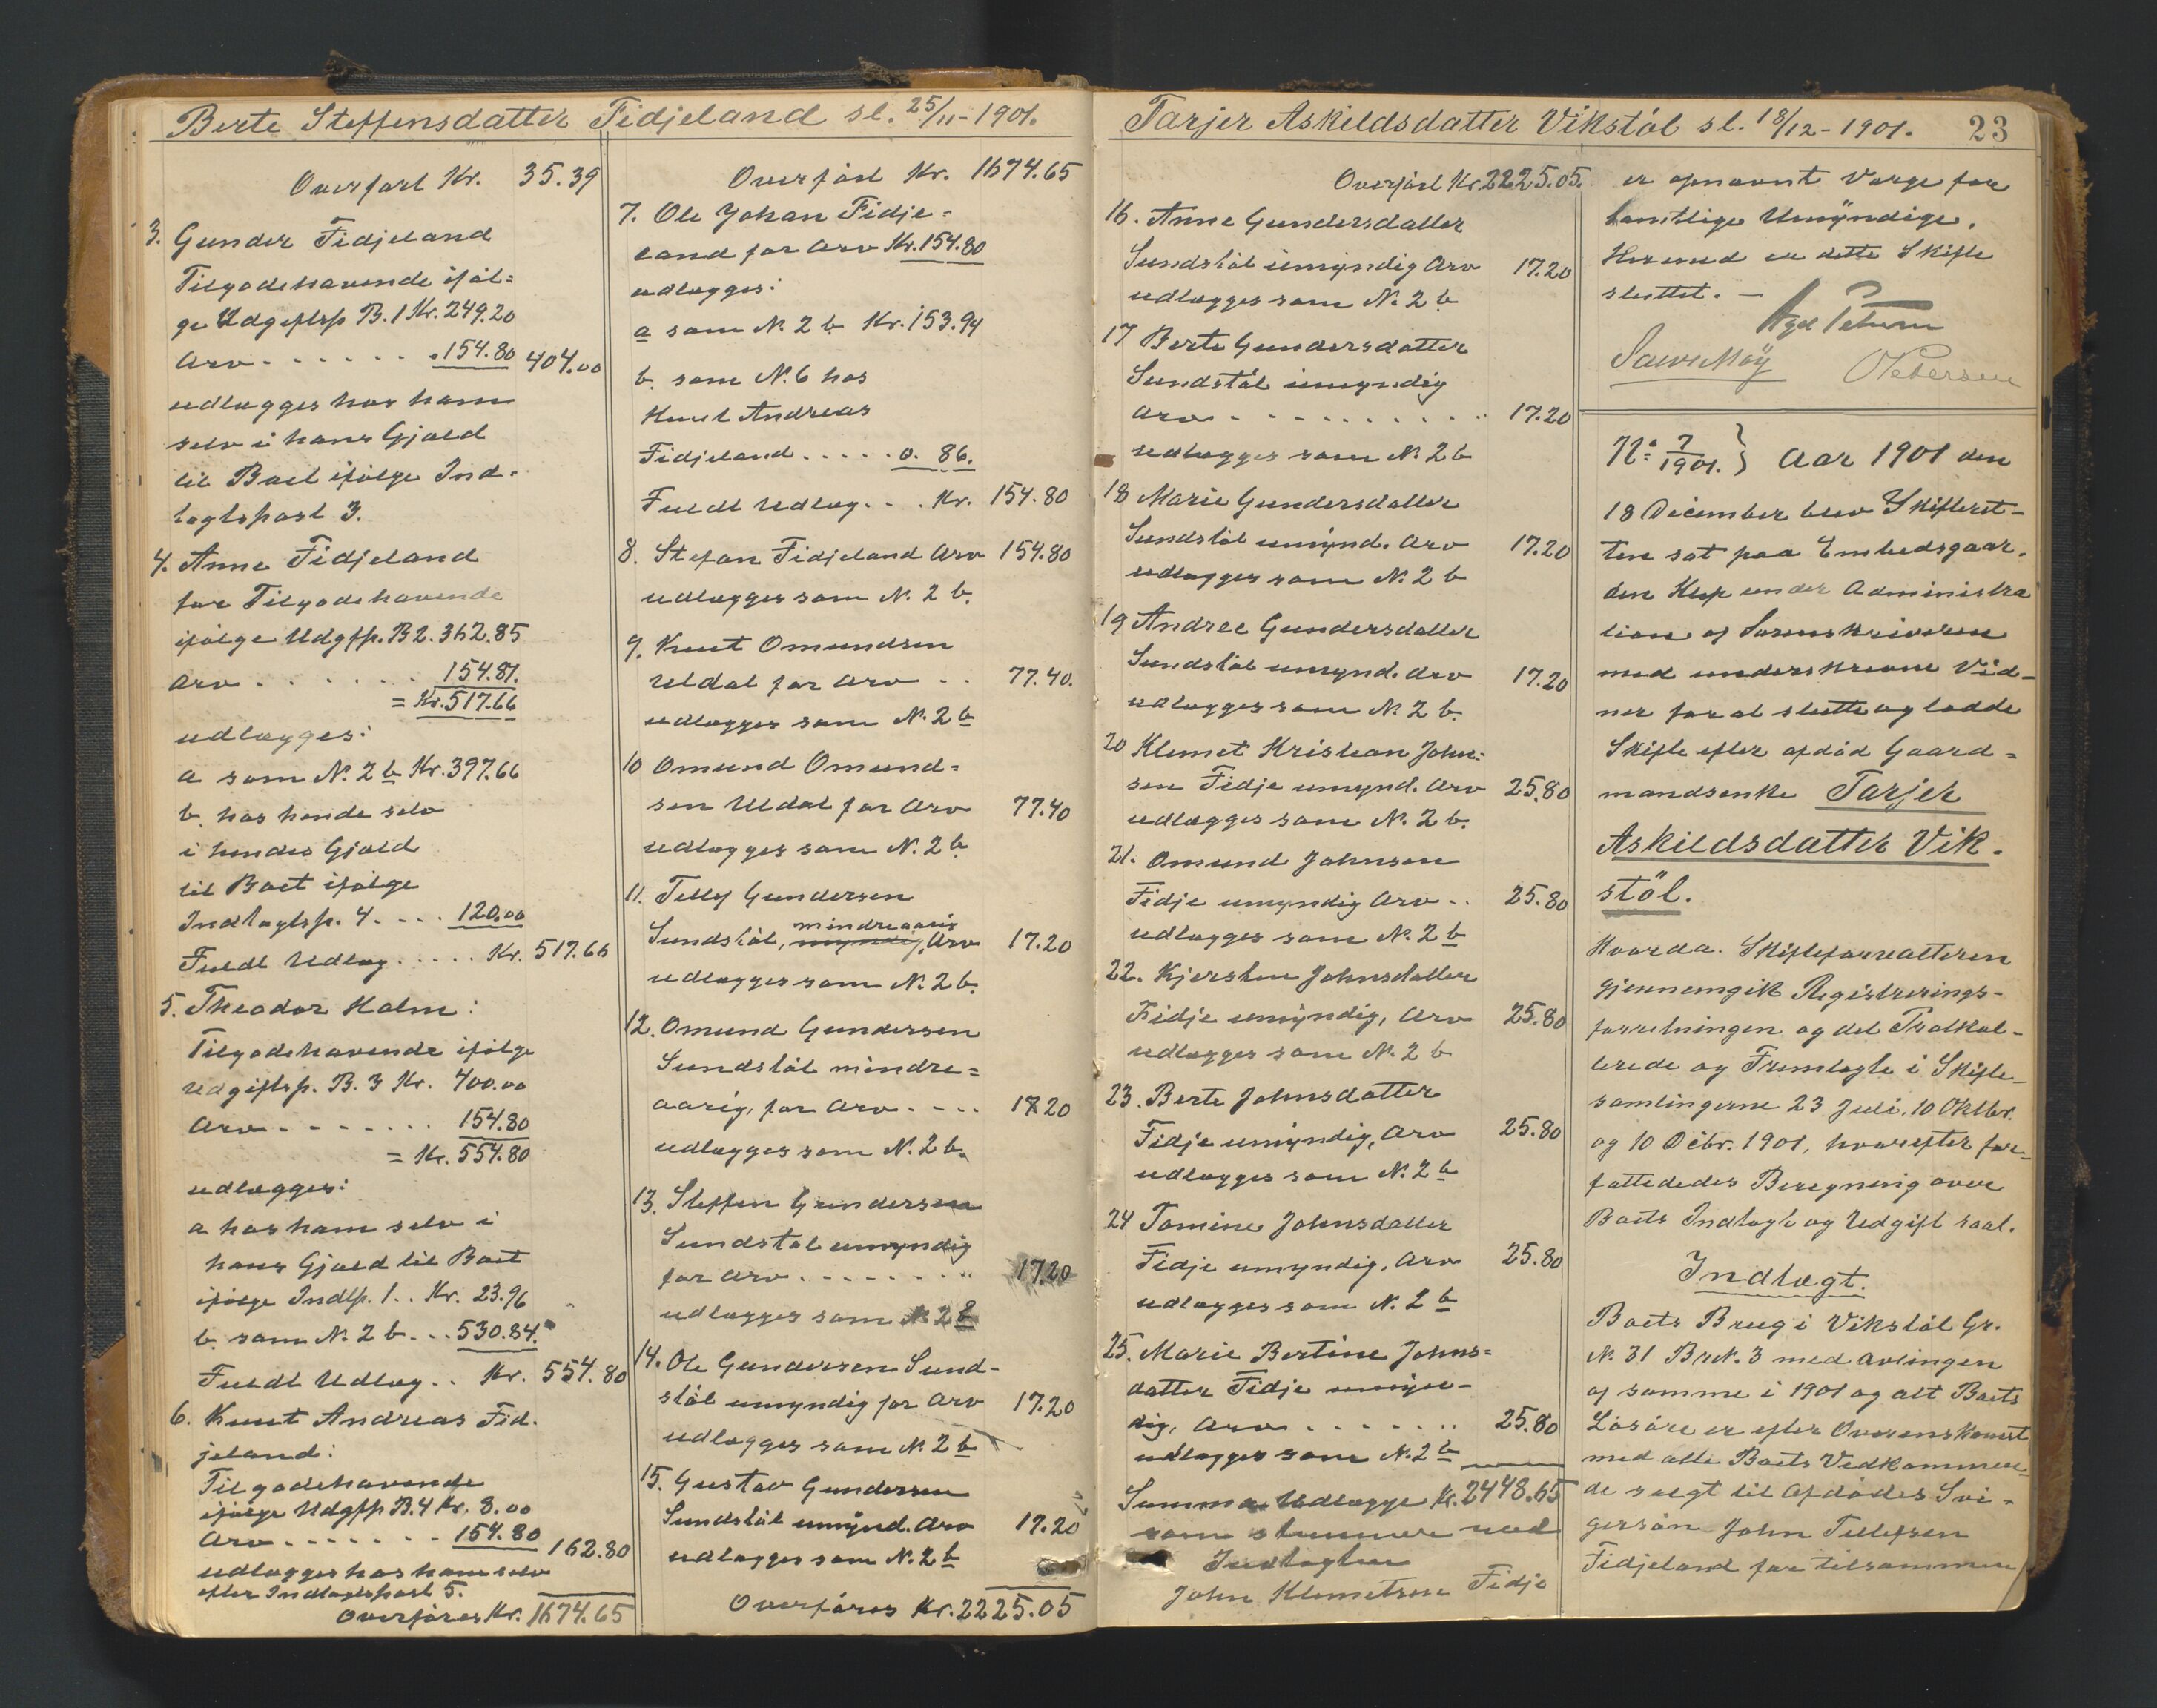 Berte Steffensdatter Fidjeland sl. 25/11-1901.
Overført Kr. 35.39
3. Gunder Fidjeland
Tilgodehavende iføl=
ge Udgiftsp B. 1 Kr. 249.20
Arv . . . . . . 154.80 404.00
udlægges hos ham
selv i hans Gjæld
til Boet ifølge Ind-
tægtspost 3.
4. Anne Fidjeland
for Tilgodehavende
ifølge Udgfp. B 2. 362.85
Arv . . . . . . 154.81.
= Kr. 517.66
udlægges:
a som N. 2 b Kr. 397.66
b. hos hende selv
i hendes Gjæld
til Boet ifølge
Indtægtsp. 4 . . . . 120.00
Fuldt Udlæg . . . . . Kr. 517.66
5. Theodor Holm:
Tilgodehavende ifølge
Udgiftsp. B. 3 Kr. 400.00
Arv . . . . . . . 154.80
= Kr. 554.80
udlægges:
a hos ham selv i
hans Gjæld til Boet
ifølge Indtp. 1 . . Kr. 23.96
b. som N. 2 b . . . 530.84.
Fuldt Udlæg . . Kr. 554.80
6. Knut Andreas Fid-
jeland:
Tilgodehavende
ifølge Udgfp B. 4 Kr. 8.00
Arv . . . . . . . 154.80 162.80
udlægges hos ham selv
efter Indtægtspost 5.
Overføres Kr. 1674.65
Overført Kr. 1674.65
7. Ole Johan Fidje=
land for Arv Kr. 154.80
udlægges:
a som N. 2 b Kr. 153.94
b. som N. 6 hos
Knut Andreas
Fidjeland . . . . . 0. 86.
Fuldt Udlæg . . . Kr. 154.80
8. Stefan Fidjeland Arv 154.80
udlægges som N. 2 b.
9. Knut Omundsen
Uldal for Arv . . 77.40.
udlægges som N. 2 b
10 Omund Omund=
sen Uldal for Arv 77.40
udlægges som N. 2 b.
11. Tellef Gundersen
mindreaarig
Sundstøl, umyndig, Arv 17.20
udlægges som N. 2 b.
12. Omund Gundersen
Sundstøl mindre=
aarig, for Arv . . . . 17.20
udlægges som N. 2 b.
13. Steffen Gundersen
Sundstøl umyndig
for Arv . . . . . . . . 17.20
udlægges som N. 2 b
14. Ole Gundersen Sund-
støl umyndig for Arv 17.20
udlægges som N. 2 b
15. Gustav Gundersen
Sundstøl umynd. Arv 17.20
udlægges som N. 2 b
Overføres Kr. 2225.05
Tarjer Askildsdatter Vikstøl sl. 18/12-1901. 23
Overført Kr. 2225.05.
16. Anne Gundersdatter
Sundstøl umyndig Arv 17.20
udlægges som N. 2 b
17 Berte Gundersdatter
Sundstøl umyndig
Arv . . . . . . . . . . . 17.20
udlægges som N. 2 b
18 Marie Gundersdatter
Sundstøl umynd. Arv 17.20
udlægges som N. 2 b
19 Andree Gundersdatter
Sundstøl umynd. Arv 17.20
udlægges som N. 2 b.
20 Klemet Kristian John=
sen Fidje umynd. Arv 25.80
udlægges som N. 2 b.
21. Omund Johnsen
Fidje umyndig Arv . . 25.80
udlægges som N. 2 b
22. Kjersten Johnsdatter
Fidje umyndig, Arv 25.80
udlægges som N. 2 b
23. Berte Johnsdatter
Fidje umyndig, Arv 25.80
udlægges som N. 2 b
24 Tomine Johnsdatter
Fidje umyndig, Arv 25.80
udlægges som N. 2 b
25. Marie Bertine Johns=
datter Fidje umyn-
dig, Arv . . . . . . . 25.80
udlægges som N. 2 b
Summa Udlægge Kr. 2448.65
som stemmer med
Indtægten
John Klemetsen Fidje
er opnævnt Værge for
samtlige Umyndige.
Hermed er dette Skifte
sluttet. —
Petersen
N: 7/1901. } Aar 1901 den
18 December blev Skifteret-
ten sat paa Embedsgaar-
den under Administra
tion af Sorenskriveren
med underskrevne Vid-
ner for at slutte og lodde
Skifte efter afdød Gaard=
mandsenke Tarjer
Askildsdatter Vik-
støl.
Hvorda. Skifteforvalteren
gjennemgik Registrerings-
forretningen og det Protkol-
lerede og Fremlagte i Skifte-
samlingerne 23 Juli, 10 Oktbr.
og 10 Debr. 1901, hvorefter for-
fattededes Beregning over
Boets Indtægt og Udgift saal.
Indtægt.
Boets Brug i Vikstøl Gr.
N. 31 BrN. 3 med Avlingen
af samme i 1901 og alt Boets
Løsøre er efter Overenskomst
med alle Boets Vedkommen-
de solgt til Afdødes Svi-
gersøn John Tellefsen
Fidjeland for tilsammen